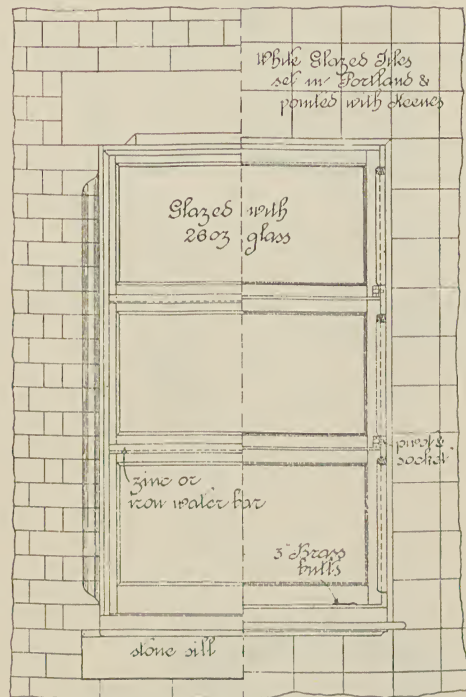 White Glazed Tiles
set in Portland &
pointed with Keenes
Glazed with
26oz glass
pivot &
socket
zinc or
iron water bar
3" Brass
butts
stone sill